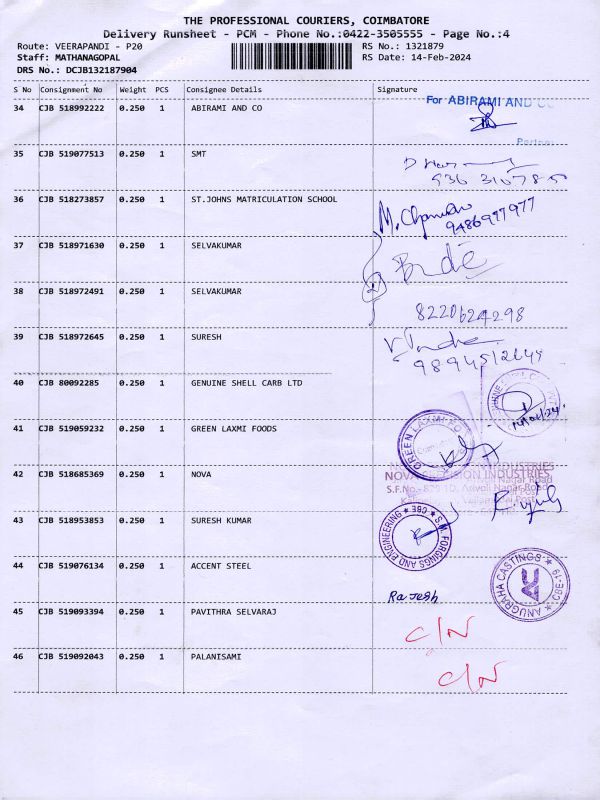 THE PROFESSIONAL COURIERS, COIMBATORE
Delivery Runsheet - PCM - Phone No.:0422-3505555 - Page No.:4
Route: VEERAPANDI - P20 RS No.: 1321879
Staff: MATHANAGOPAL RS Date: 14-Feb-2024
DRS No.: DCJB132187904
S No Consignment No Weight PCS Consignee Details Signature
34 CJB 518992222 0.250 1 ABIRAMI AND CO For ABIRAMI AND CO
Partner
35 CJB 519077513 0.250 1 SMT
36 CJB 518273857 0.250 1 ST.JOHNS MATRICULATION SCHOOL
9486977977
37 CJB 518971630 0.250 1 SELVAKUMAR
38 CJB 518972491 0.250 1 SELVAKUMAR
8220624298
39 CJB 518972645 0.250 1 SURESH
40 CJB 80092285 0.250 1 GENUINE SHELL CARB LTD
41 CJB 519059232 0.250 1 GREEN LAXMI FOODS GREEN LAXMI FO
42 CJB 518685369 0.250 1 NOVA NOVA PRECISION INDUSTRIES
43 CJB 518953853 0.250 1 SURESH KUMAR S.M. FORGINGS AND ENGINEERING ★ CBE ★
44 CJB 519076134 0.250 1 ACCENT STEEL Rajesh
ANUGRAHA CASTINGS ★ CBE-19 ★
45 CJB 519093394 0.250 1 PAVITHRA SELVARAJ C/N
46 CJB 519092043 0.250 1 PALANISAMI C/N